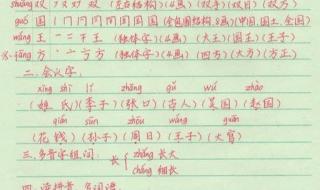 shuāng 双 フ 又 双 双 (左右结构)(4画)(双手)(双日)(双方)
guó 国 丨 冂 冂 冃 国 国 国 (全包围结构,8画)(中国,国土,全国)
wáng 王 一 二 干 王 (独体字)(4画)(大王)(国王)(王子)
fāng 方 丶 亠 亍 方 (独体字)(4画)(四方)(大方)(方正)
二.会认字.
xìng shì lǐ zhāng gǔ wú zhào
(姓氏)(李子)(张口)(古人)(吴国)(赵国)
qián sūn zhōu wáng guān
(花钱)(孙子)(周日)(王子)(大官)
三.多音字组词:
长 zhǎng 长大
cháng 细长